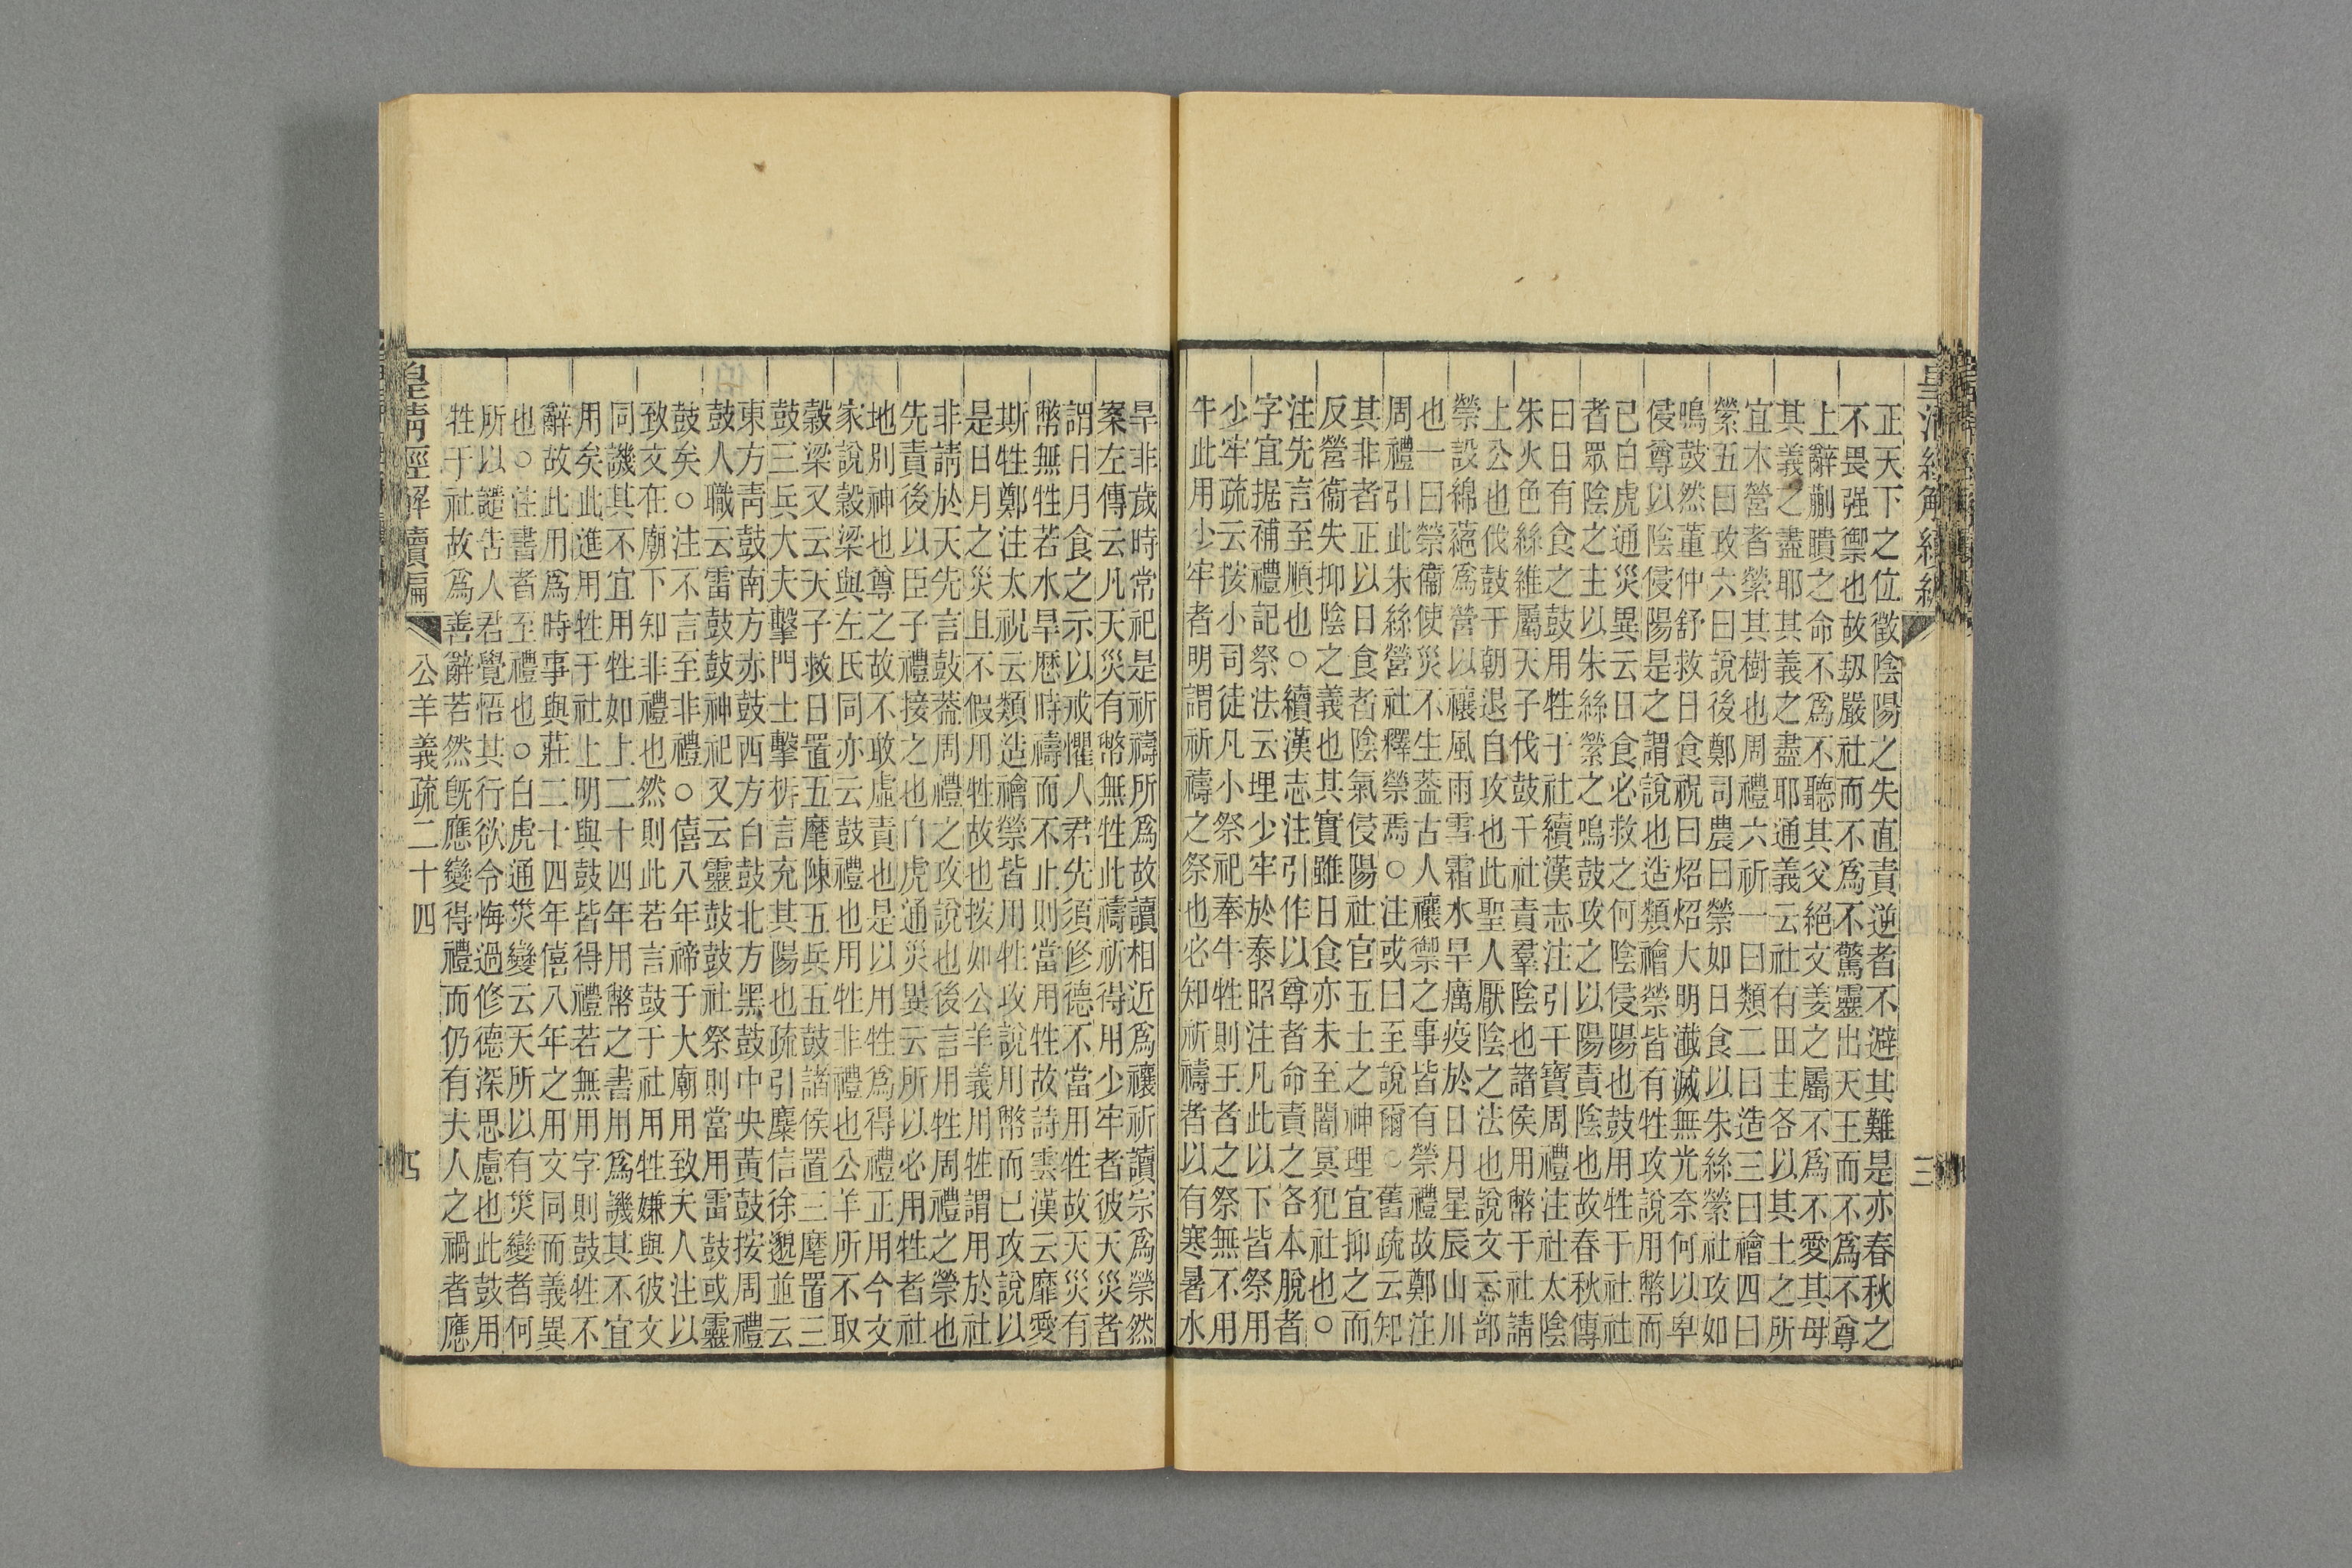 正天下之位徵陰陽之失直責逆者不避其難是亦春秋之
不畏强禦也故刼嚴社而不爲不驚靈出天王而不爲不尊
上辭蒯聵之命不爲不聽其父絕文姜之屬不爲不愛其母
其義之盡耶其義之盡耶通義云社有田主各以其土之所
宜木營者縈其樹也周禮六祈一曰類二曰造三曰禬四曰
禜五曰攻六曰說後鄭司農曰禜如日食以朱絲縈社攻如
鳴鼓然董仲舒救日食祝曰炤炤大明瀸滅無光奈何以𨸏
侵尊以陰侵陽是之謂說也造類禬禜皆有牲攻說用幣而
已白虎通災異云日食必救之何陰侵陽也鼓用牲于社社
者眾陰之主以朱絲縈之鳴鼓攻之以陽責陰也故春秋傳
曰日有食之鼓用牲于社續漢志注引干寶周禮注社太陰
朱火色絲維屬天子伐鼓于社責羣陰也諸侯用幣于社請
上公也伐鼓于朝退自攻也此聖人厭陰之法也說文示部
禜設綿蕝爲營以禳風雨雪霜水旱癘疫於日月星辰山川
也一曰禜衞使災不生葢古人禳禦之事皆有禜禮故鄭注
周禮引此朱絲營社釋禜焉○注或曰至說爾○舊疏云知
其非者正以日食者陰氣侵陽社官五土之神理宜抑之而
反營衞失抑陰之義也其實雖日食亦未至闇冥犯社也○
注先言至順也○續漢志注引作以尊者命責之各本脫者
字宜据補禮記祭法云埋少牢於泰昭注凡此以下皆祭用
少牢疏云按小司徒凡小祭祀奉牛牲則王者之祭無不用
牛此用少牢者明謂祈禱之祭也必知祈禱者以有寒暑水
旱非歲時常祀是祈禱所爲故讀相近爲禳祈讀宗爲禜然
案左傳云凡天災有幣無牲此禱祈得用少牢者彼天災者
謂日月食之示以戒懼人君先須修德不當用牲故天災有
幣無牲若水旱歷時禱而不止則當用牲故詩雲漢云靡愛
斯牲鄭注太祝云類造禬禜皆用牲攻說用幣而已攻說以
是日月之災且不假用牲故也按如公羊義用牲謂用於社
非請於天先言鼓葢周禮之攻說也後言用牲周禮之禜也
先責後以臣子禮接之也白虎通災異云所以必用牲者社
地別神也尊之故不敢虛責也是以用牲爲得禮正用今文
家說穀梁與左氏同亦云鼓禮也用牲非禮也公羊所不取
穀梁又云天子救日置五麾陳五兵五鼓諸侯置三麾置三
鼓三兵大夫擊門士擊柝言充其陽也疏引麋信徐邈並云
東方靑鼓南方赤鼓西方白鼓北方黑鼓中央黃鼓按周禮
鼓人職云雷鼓鼓神祀又云靈鼓鼓社祭則當用雷鼓或靈
鼓矣○注不言至非禮○僖八年禘于大廟用致夫人注以
致文在廟下知非禮也然則此若言鼓于社用牲嫌與彼文
同譏其不宜用牲如上二十四年用幣之書用爲譏其不宜
用矣此進用牲于社上明與鼓皆得禮若無用字則鼓牲不
辭故此用爲時事與莊二十四年僖八年之用文同而義異
也○注書者至禮也○白虎通災變云天所以有災變者何
所以譴吿人君覺悟其行欲令悔過修德深思慮也此鼓用
牲于社故爲善辭若然旣應變得禮而仍有夫人之禍者應
皇淸經解續編 公羊義疏二十四
三